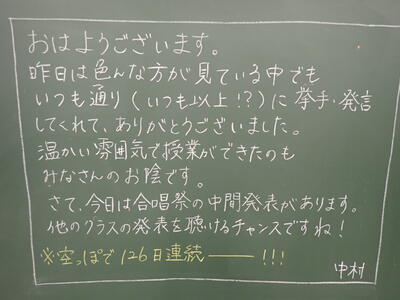 おはようございます。
昨日は色んな方が見ている中でも
いつも通り(いつも以上!?)に挙手・発言
してくれて、ありがとうございました。
温かい雰囲気で授業ができたのも
みなさんのお陰です。
さて、今日は合唱祭の中間発表があります。
他のクラスの発表を聴けるチャンスですね!
※空っぽで126日連続――!!!
中村